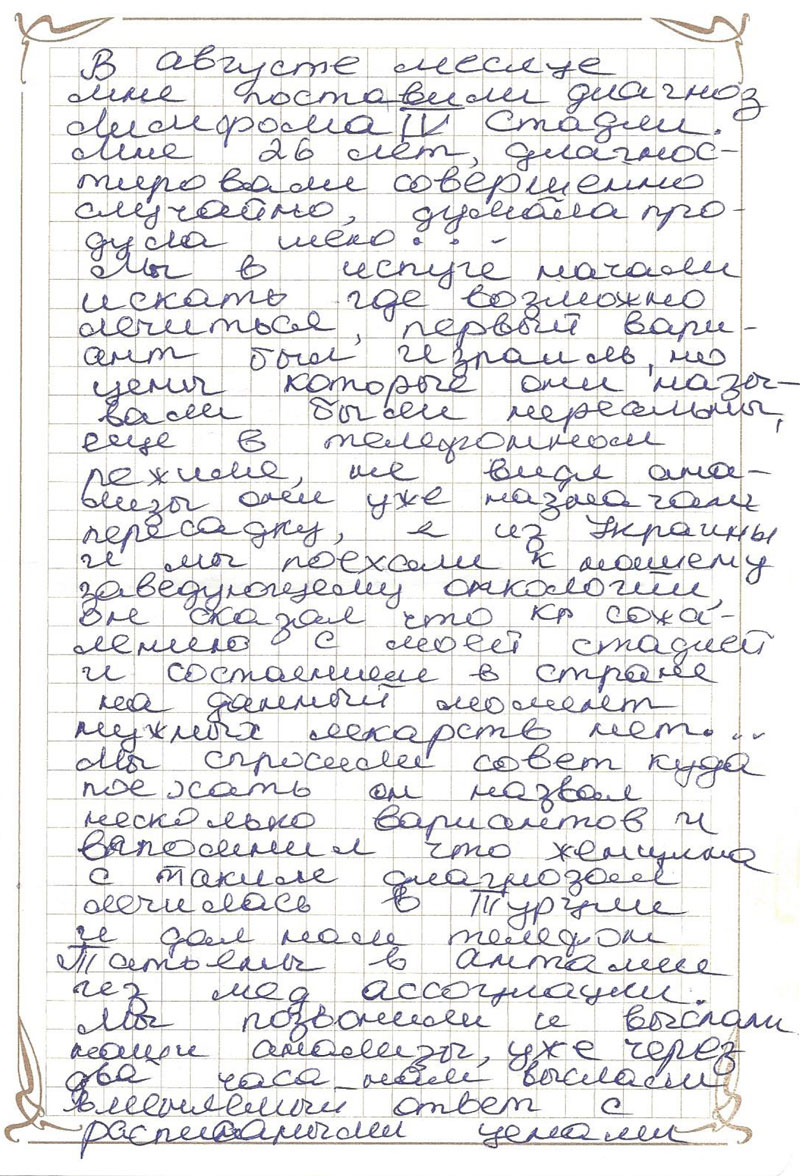 В августе месяце
мне поставили диагноз
Лимфома IV стадии.
Мне 26 лет, диагнос-
тировали совершенно
случайно, думала про-
дула шею...-
Мы в испуге начали
искать где возможно
лечиться, первый вари-
ант был Израиль, но
цены которые они назы-
вали были нереальны,
еще в телефонном
режиме, не видя ана-
лизы они уже назначали
пересадку, я из Украины
и мы поехали к нашему
заведующему онкологии,
он сказал что к сожа-
лению с моей стадией
и состоянием в стране
на данный момент
нужных лекарств нет...
Мы спросили совет куда
поехать он назвал
несколько вариантов и
вспомнил что женщина
с таким диагнозом
лечилась в Турции
и дал нам телефон
Татьяны в анталии
из мед ассоциации.
Мы позвонили и выслали
наши анализы, уже через
два часа нам выслали
вменяемый ответ с
расписаными ценами